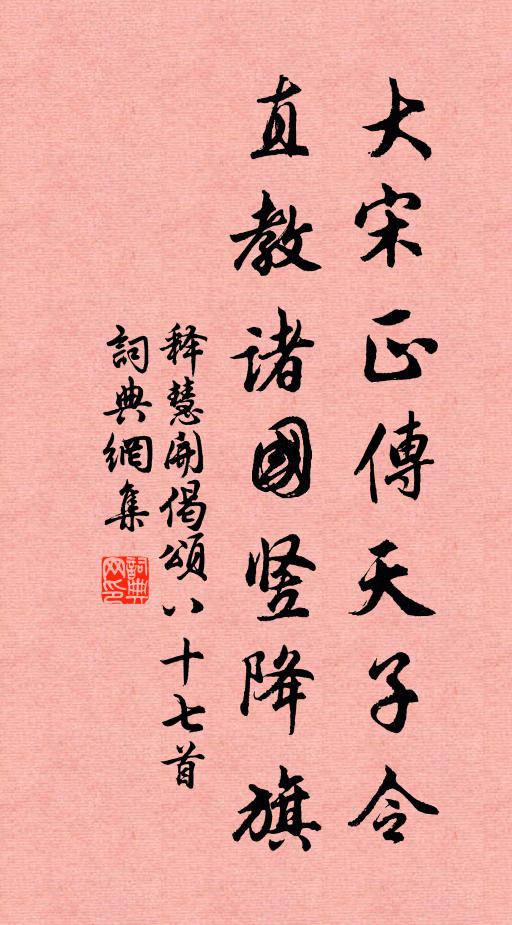 大宋正傳天子令
直教诸國竖降旗
释慧開偈頌八十七首
詞典網集
詞典网印